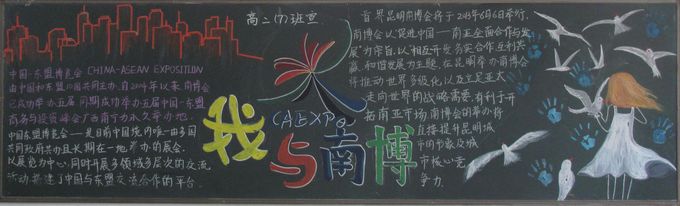 高二(7)班宣
中国-东盟博览会 CHINA-ASEAN EXPOSITION
由中国和东盟10国共同主办,自2004年以来,南博会
已成功举办五届,同期成功举办五届中国-东盟
商务与投资峰会,广西南宁为永久举办地.
中国东盟博览会——是目前中国境内唯一由多国
共同政府共办且长期在一地举办的展会.
以展览为中心,同时开展多领域多层次的交流
活动,搭建了中国与东盟交流合作的平台.
CAEXPO
我与南博
首界昆明南博会将于2013年6月6日举行,
南博会以"促进中国—南亚全面合作与发
展"为宗旨,以"相互开放务实合作互利共
赢,和谐发展"为主题,在昆明举办南博会
将推动世界多极化,以及立足亚太
走向世界的战略需要,有利于开
拓南亚市场,南博会的举办将
直接提升昆明城
市的节象及城
市核心竞
争力.